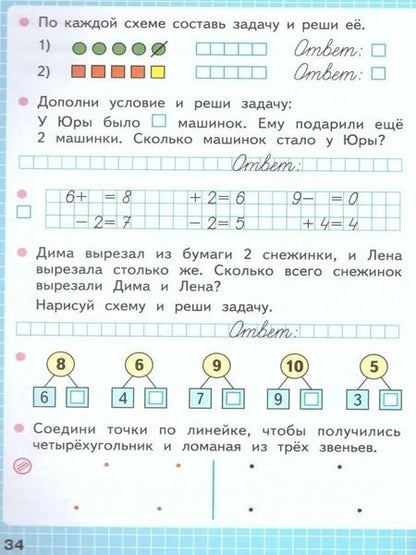 По каждой схеме составь задачу и реши её.
1) Ответ:
2) Ответ:
Дополни условие и реши задачу:
У Юры было машинок. Ему подарили ещё
2 машинки. Сколько машинок стало у Юры?
Ответ:
6+ = 8 + 2= 6 9− = 0
− 2= 7 − 2= 5 + 4= 4
Дима вырезал из бумаги 2 снежинки, и Лена
вырезала столько же. Сколько всего снежинок
вырезали Дима и Лена?
Нарисуй схему и реши задачу.
Ответ:
8 6 9 10 5
6 4 7 9 3
Соедини точки по линейке, чтобы получились
четырёхугольник и ломаная из трёх звеньев.
34